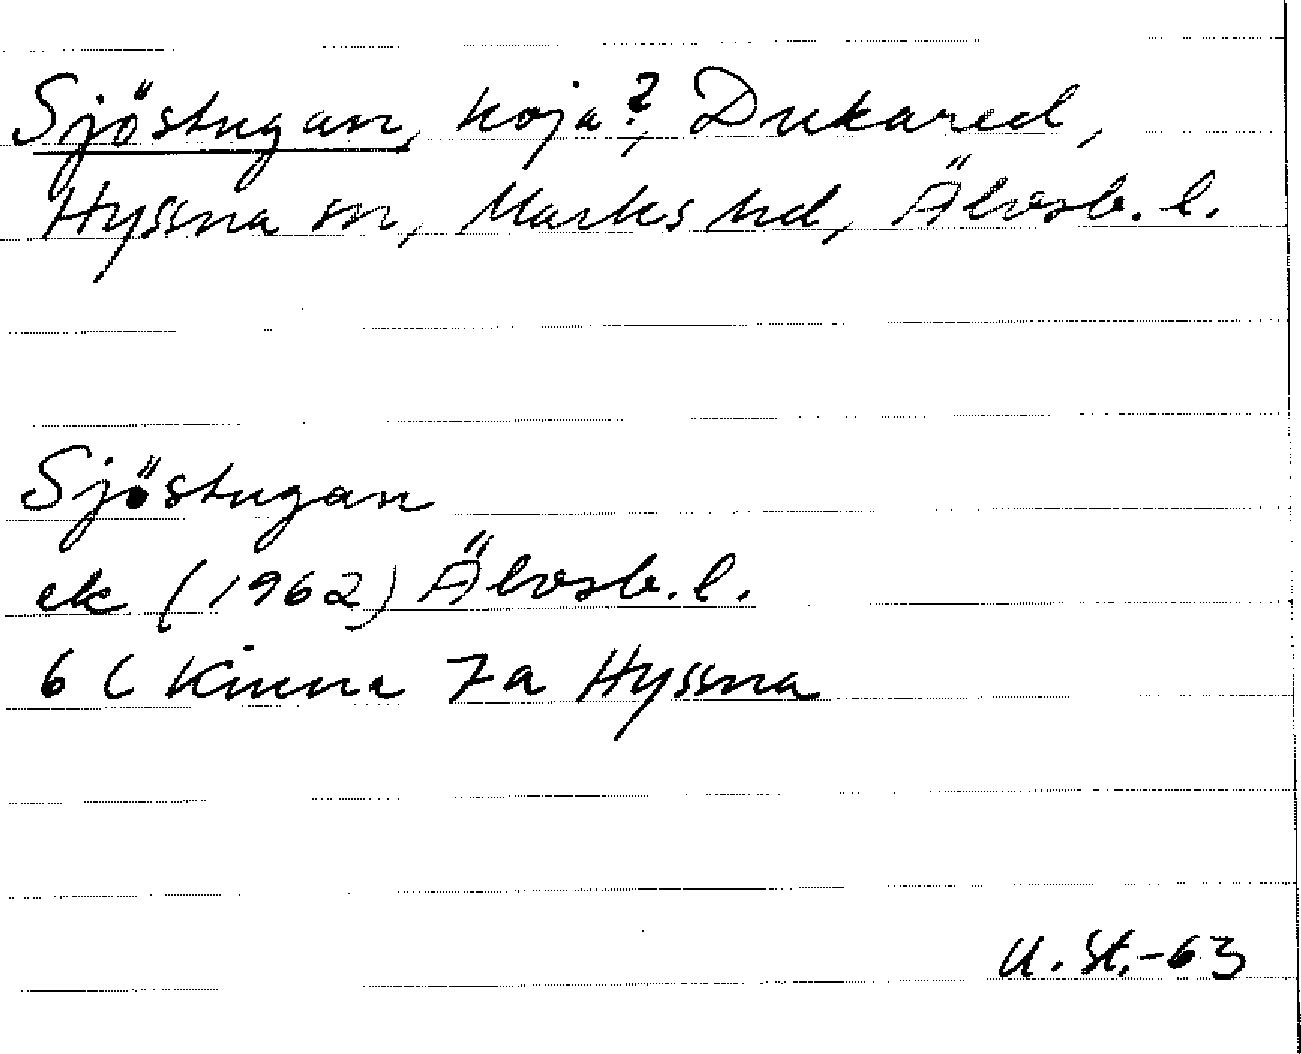 Sjöstugan, koja?, Dukared,
Hyssna sn, Marks hd, Älvsb. l.
Sjöstugan
ek (1962) Älvsb. l.
6 C Kinna 7a Hyssna
U. St.-63